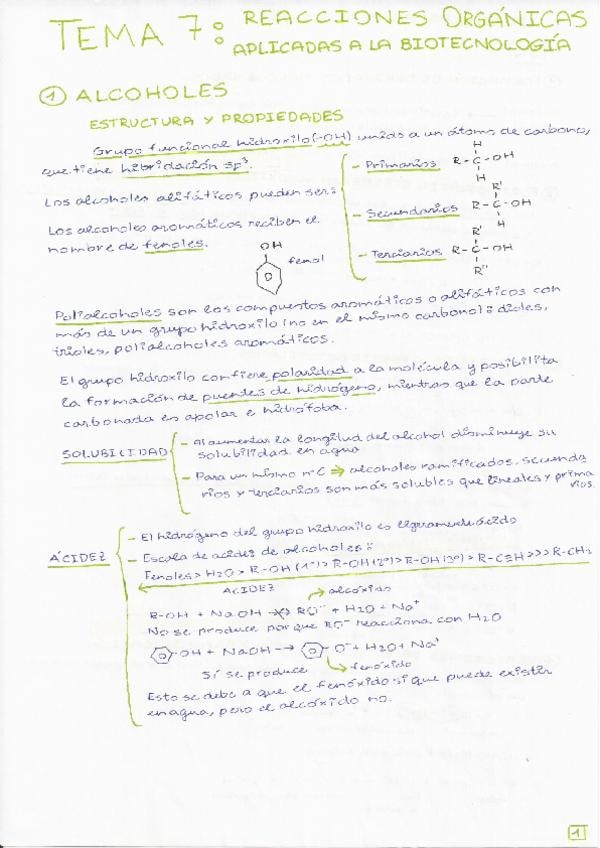 TEMA 7: REACCIONES ORGÁNICAS
APLICADAS A LA BIOTECNOLOGÍA
① ALCOHOLES
ESTRUCTURA Y PROPIEDADES
Grupo funcional hidroxilo (-OH) unido a un átomo de carbono,
que tiene hibridación sp³.
Los alcoholes alifáticos pueden ser:
- Primarios
H
R-C-OH
H
- Secundarios
R'
R-C-OH
H
- Terciarios
R'
R-C-OH
R''
Los alcoholes aromáticos reciben el
nombre de fenoles.
OH
fenol
Polialcoholes son los compuestos aromáticos o alifáticos con
más de un grupo hidroxilo (no en el mismo carbono): dioles,
trioles, polialcoholes aromáticos.
El grupo hidroxilo confiere polaridad a la molécula y posibilita
la formación de puentes de hidrógeno, mientras que la parte
carbonada es apolar e hidrófoba.
SOLUBILIDAD
- Al aumentar la longitud del alcohol disminuye su
solubilidad en agua
- Para un mismo nºC ⇒ alcoholes ramificados, secunda
rios y terciarios son más solubles que lineales y prima
rios.
ÁCIDEZ
- El hidrógeno del grupo hidroxilo es ligeramente ácido
- Escala de acidez de alcoholes:
Fenoles > H2O > R-OH (1º) > R-OH (2º) > R-OH (3º) > R-C≡H >>> R-CH2
ACIDEZ
alcóxido
R-OH + NaOH ↛ RO⁻ + H2O + Na⁺
No se produce porque RO⁻ reacciona con H2O
-OH + NaOH → O⁻ + H2O + Na⁺
Sí se produce
fenóxido
Esto se debe a que el fenóxido si que puede existir
en agua, pero el alcóxido no.
1